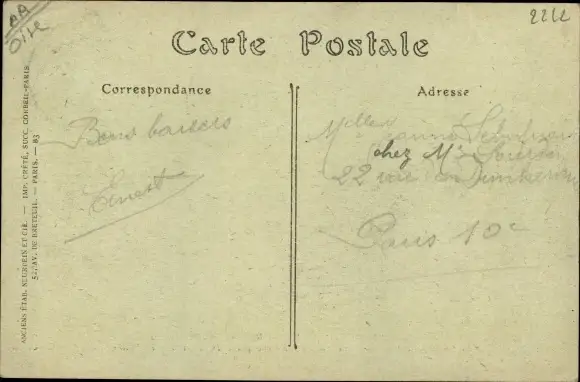 AA
Oise
2212
Carte Postale
Correspondance
Adresse
Bons baisers
Ernest
Mlle
chez Mr
22 rue
Paris 10e
ANCIENS ÉTAB. NEURDEIN ET CIE. — IMP. CRÉTÉ, SUCC. CORBEIL-PARIS
52, AV. DE BRETEUIL. — PARIS. — 83